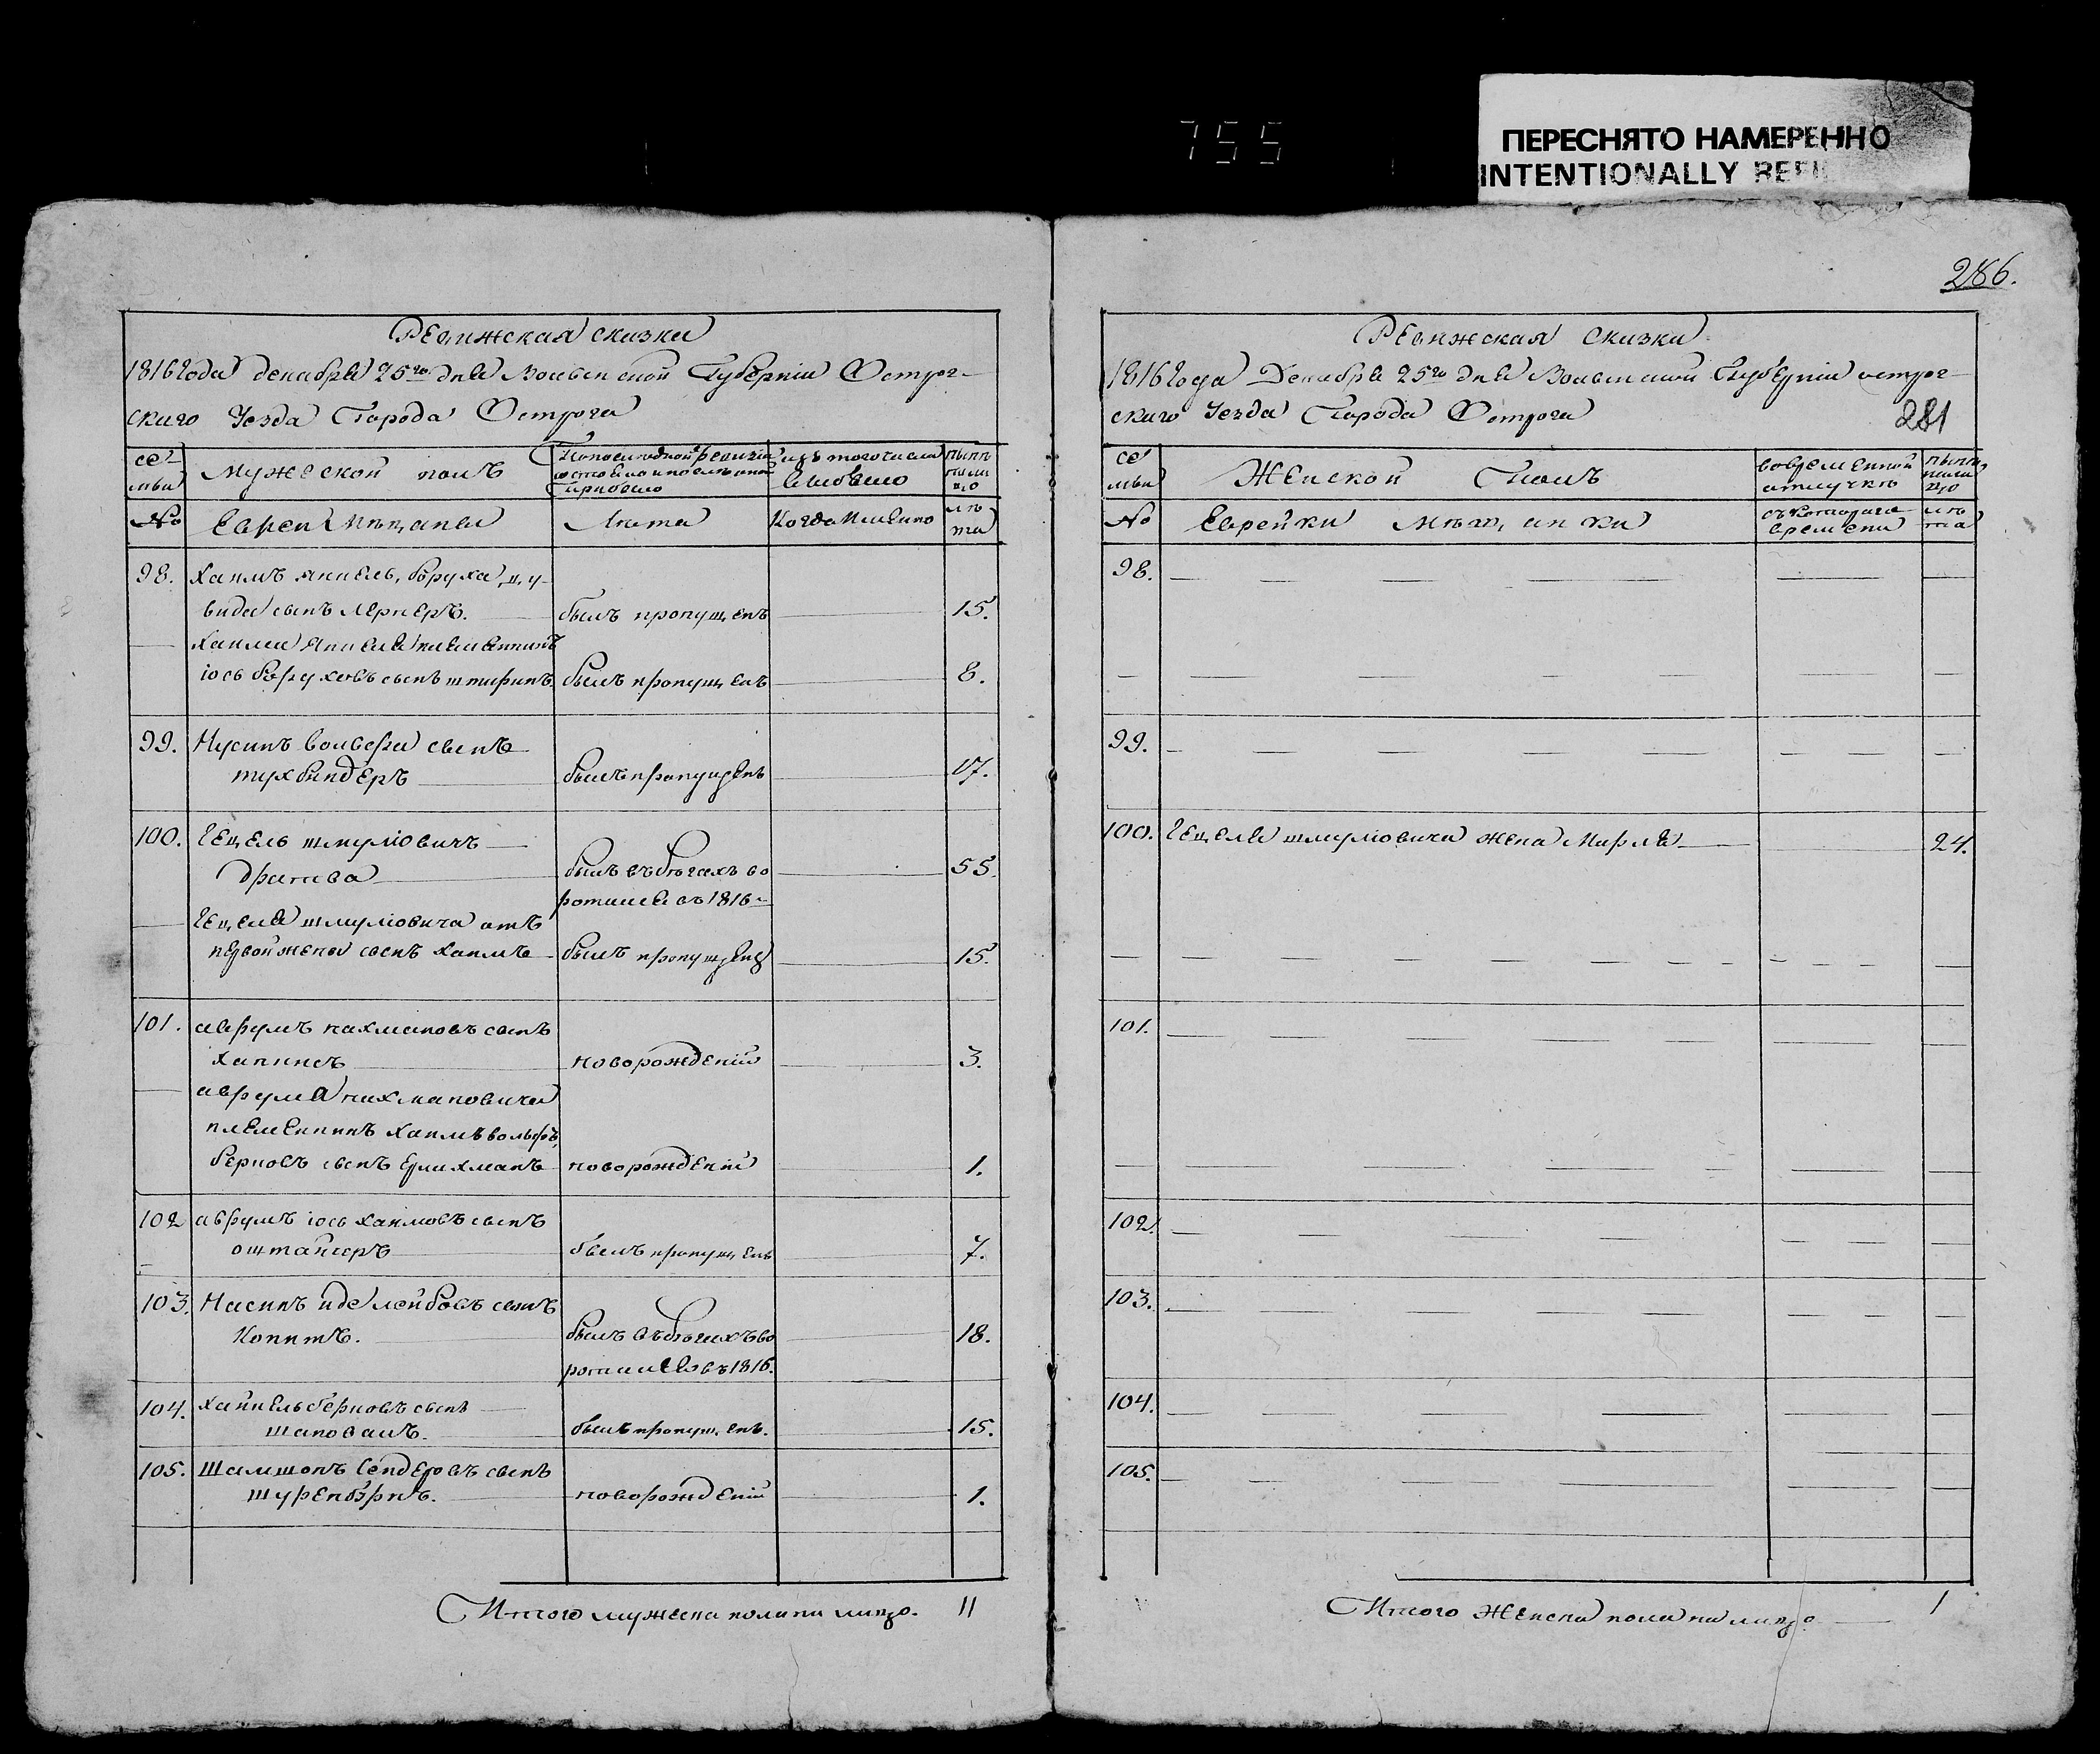 755
ПЕРЕСНЯТО НАМЕРЕННО
INTENTIONALLY REFI
286.
Ревижская сказка
1816 Года декабря 25го дня Волынской Губернии Острог-
скаго Уезда Города Острога
се-
мьи
Мужеской полъ
По последной ревизіи
состояло и после оной
прибыло
изъ того числа
выбыло
ныне
на ли
цо
№
Евреи Мещаня
Лета
Когда Имянно
ле
та
98. Хаимъ Янкель, Боруха,
вида сынъ Лернеръ. былъ пропущенъ 15.
Хаима Янкеля племянникъ
іось Боруховъ сынъ штиринъ. былъ пропущенъ 8.
99. Нусинъ Вольфа сынъ
тухбиндеръ былъ пропущенъ 17.
100. Гецель шмуліовичъ
дратва былъ въ бегахъ во
ротился въ 1816
Гецеля шмуліовича отъ
первой жены сынъ хаимъ былъ пропущенъ 15.
101. аврумъ нахмановъ сынъ
хапинсъ новорожденій 3.
аврума нахмановича
племенникъ хаимъ вольфъ,
берковъ сынъ Ерлихманъ новорожденій 1.
102 аврумъ іось хаимовъ сынъ
оштайгеръ былъ пропущенъ 7.
103. Насинъ иде лейбовъ сынъ
Копитъ. былъ въ бегахъ во
ротился въ 1816. 18.
104. хайкель берковъ сынъ
шаповалъ. былъ пропущенъ. 15.
105. Шамшонъ Сендеровъ сынъ
шуренбернъ. новорожденій 1.
Итого мужеска пола на лицо. 11
Ревижская Сказка
1816 Года Декабря 25го дня Волынской Губерніи острог-
скаго Уезда Города Острога
281
се
мьи
Женской Полъ
во временной
отлучке
ныне
на ли
цо
№
Еврейки Мещанки
съ котораго
времени
ле
та
98.
99.
100. Гецеля шмуліовича жена Мирля 24.
101.
102.
103.
104.
105.
Итого Женска пола на лицо 1